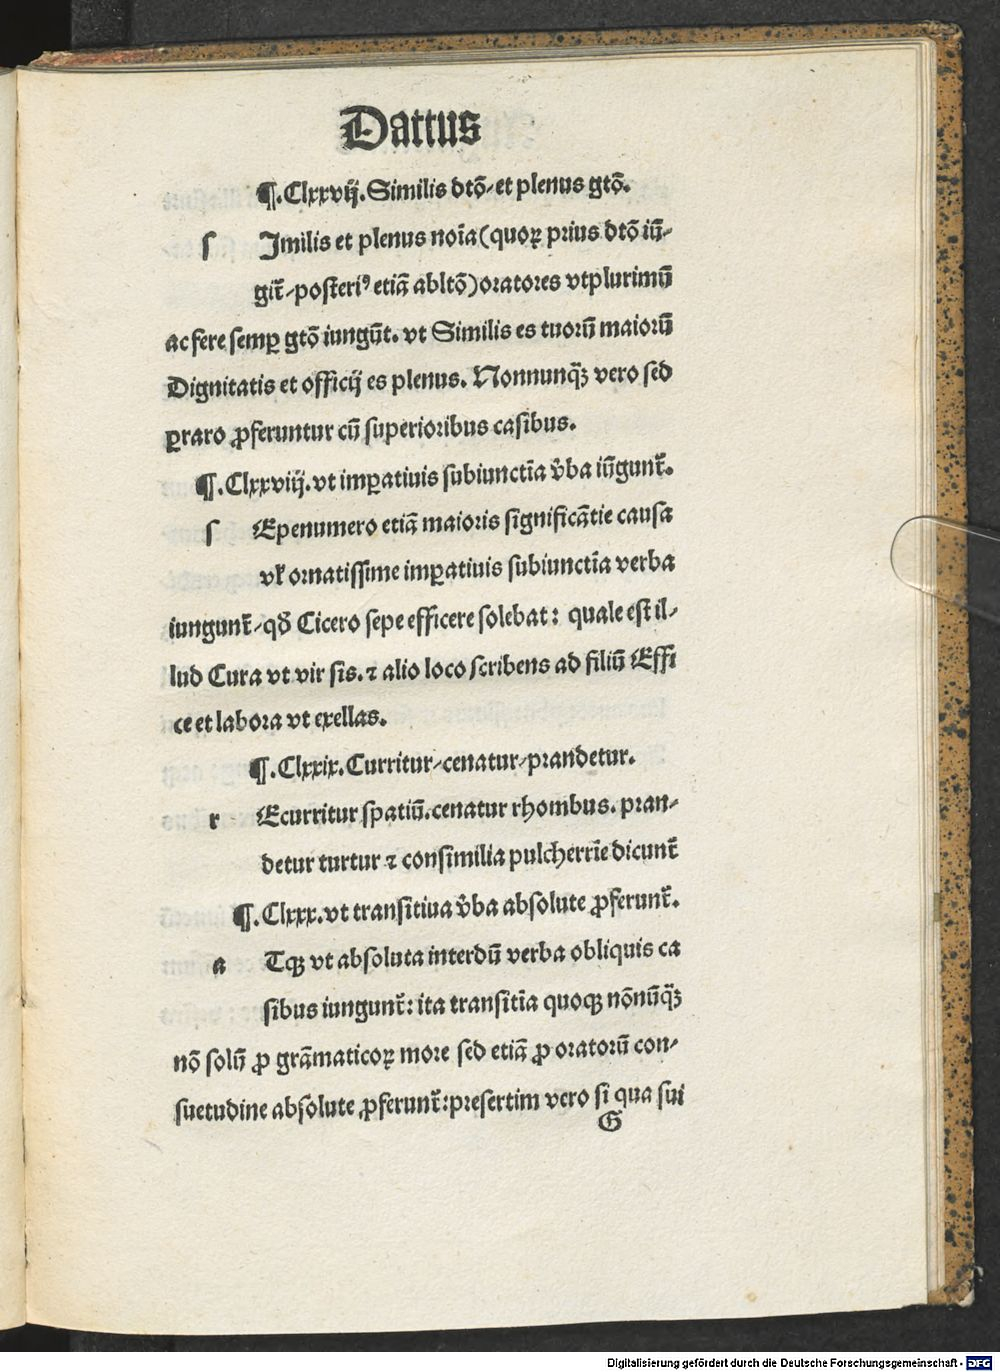 Dattus
¶.Clxxvij. Similis dtō⸗et plenus gtō.
ſ Imilis et plenus noīa(quoꝝ prius dtō iū⸗
git̄⸗poſteriꝰ etiā abltō)oratores vtplurimū
ac fere ſemꝑ gtō iungūt. vt Similis es tuorū maiorū
Dignitatis et officij es plenus. Nonnunq̄ꝫ vero ſed
ꝑraro ꝓferuntur cū ſuperioribus caſibus.
¶.Clxxviij. vt imꝑatiuis ſubiunctīa v̄ba iūgunt̄.
ſ Epenumero etiā maioris ſignificātie cauſa
vl̓ ornatiſſime imꝑatiuis ſubiunctīa verba
iungunt̄⸗qð Cicero ſepe efficere ſolebat: quale eſt il⸗
lud Cura vt vir ſis. ⁊ alio loco ſcribens ad filiū Effi
ce et labora vt exellas.
¶.Clxxix. Curritur⸗cenatur⸗prandetur.
r Ecurritur ſpatiū. cenatur rhombus. pran⸗
detur turtur ⁊ conſimilia pulcherrīe dicunt̄
¶.Clxxx. vt tranſitiua v̄ba abſolute ꝓferunt̄.
a Tqꝫ vt abſoluta interdū verba obliquis ca
ſibus iungunt̄: ita tranſitīa quoqꝫ nōnūq̄ꝫ
nō ſolū ꝓ grāmaticoꝝ more ſed etiā ꝓ oratorū con⸗
ſuetudine abſolute ꝓferunt̄: preſertim vero ſi qua ſui
G
Digitalisierung gefördert durch die Deutsche Forschungsgemeinschaft - DFG